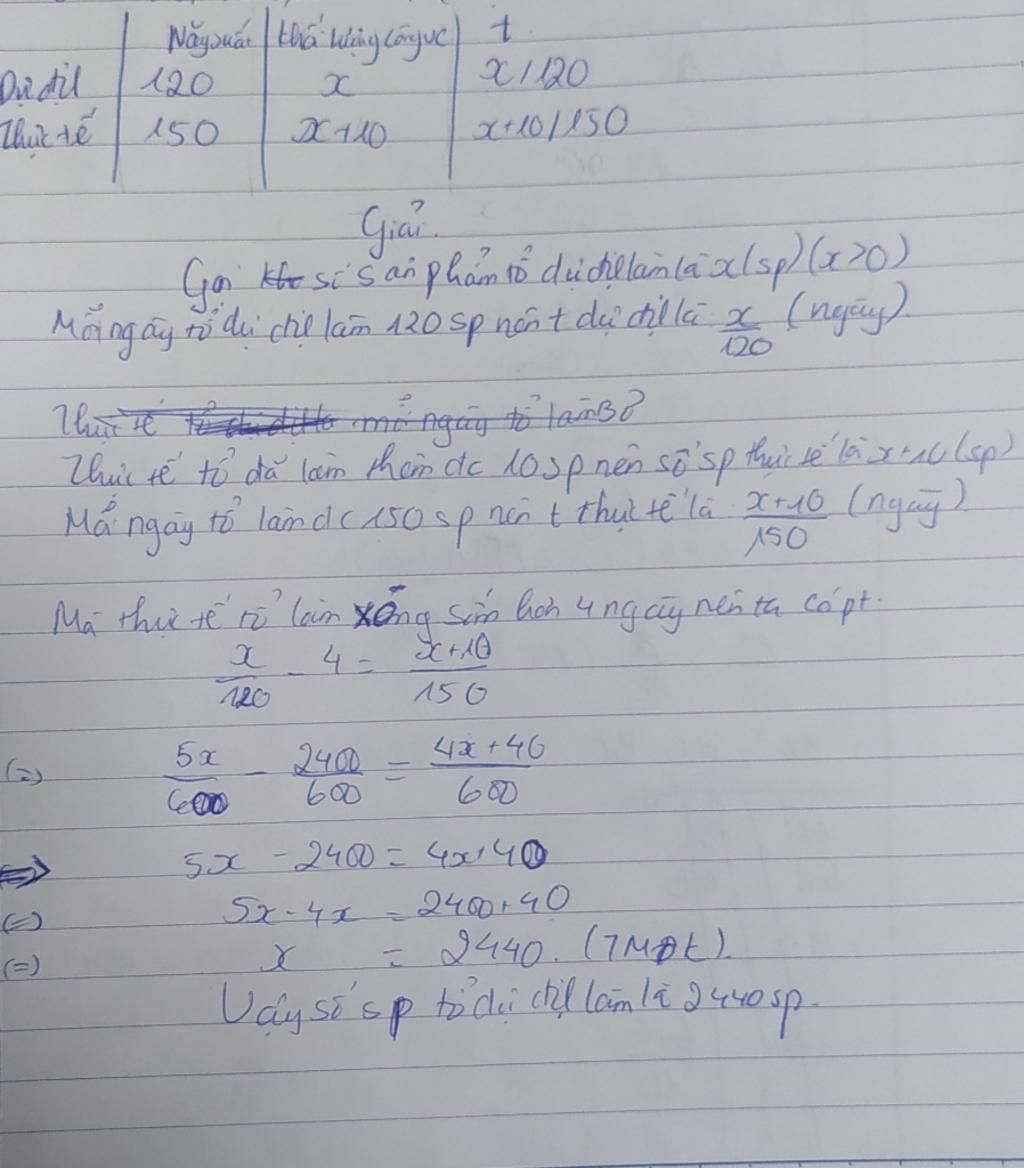 Năy suất khối lượng côngvc t
Dự địh 120 x x/120
Thực tế 150 x+10 x+10/150
Giải.
Gọi số sản phẩm tổ dự địh làm là x(sp)(x>0)
Mỗi ngày tổ dự địh làm 120 sp nên t dự địh là x/120 (ngày).
Thực tế mỗi ngày tổ làm
Thực tế tổ đã làm thêm đc 10 sp nên số sp thực tế là x+10(sp)
Mỗi ngày tổ làm đc 150 sp nên t thực tế là x+10/150 (ngày)
Mà thực tế tổ làm xong sớm hơn 4 ngày nên ta có pt.
x/120 - 4 = x+10/150
(=) 5x/600 - 2400/600 = 4x+40/600
=> 5x - 2400 = 4x+40
(=) 5x-4x = 2400+40
(=) x = 2440. (TMĐK).
Vậy số sp tổ dự địh làm là 2440 sp.